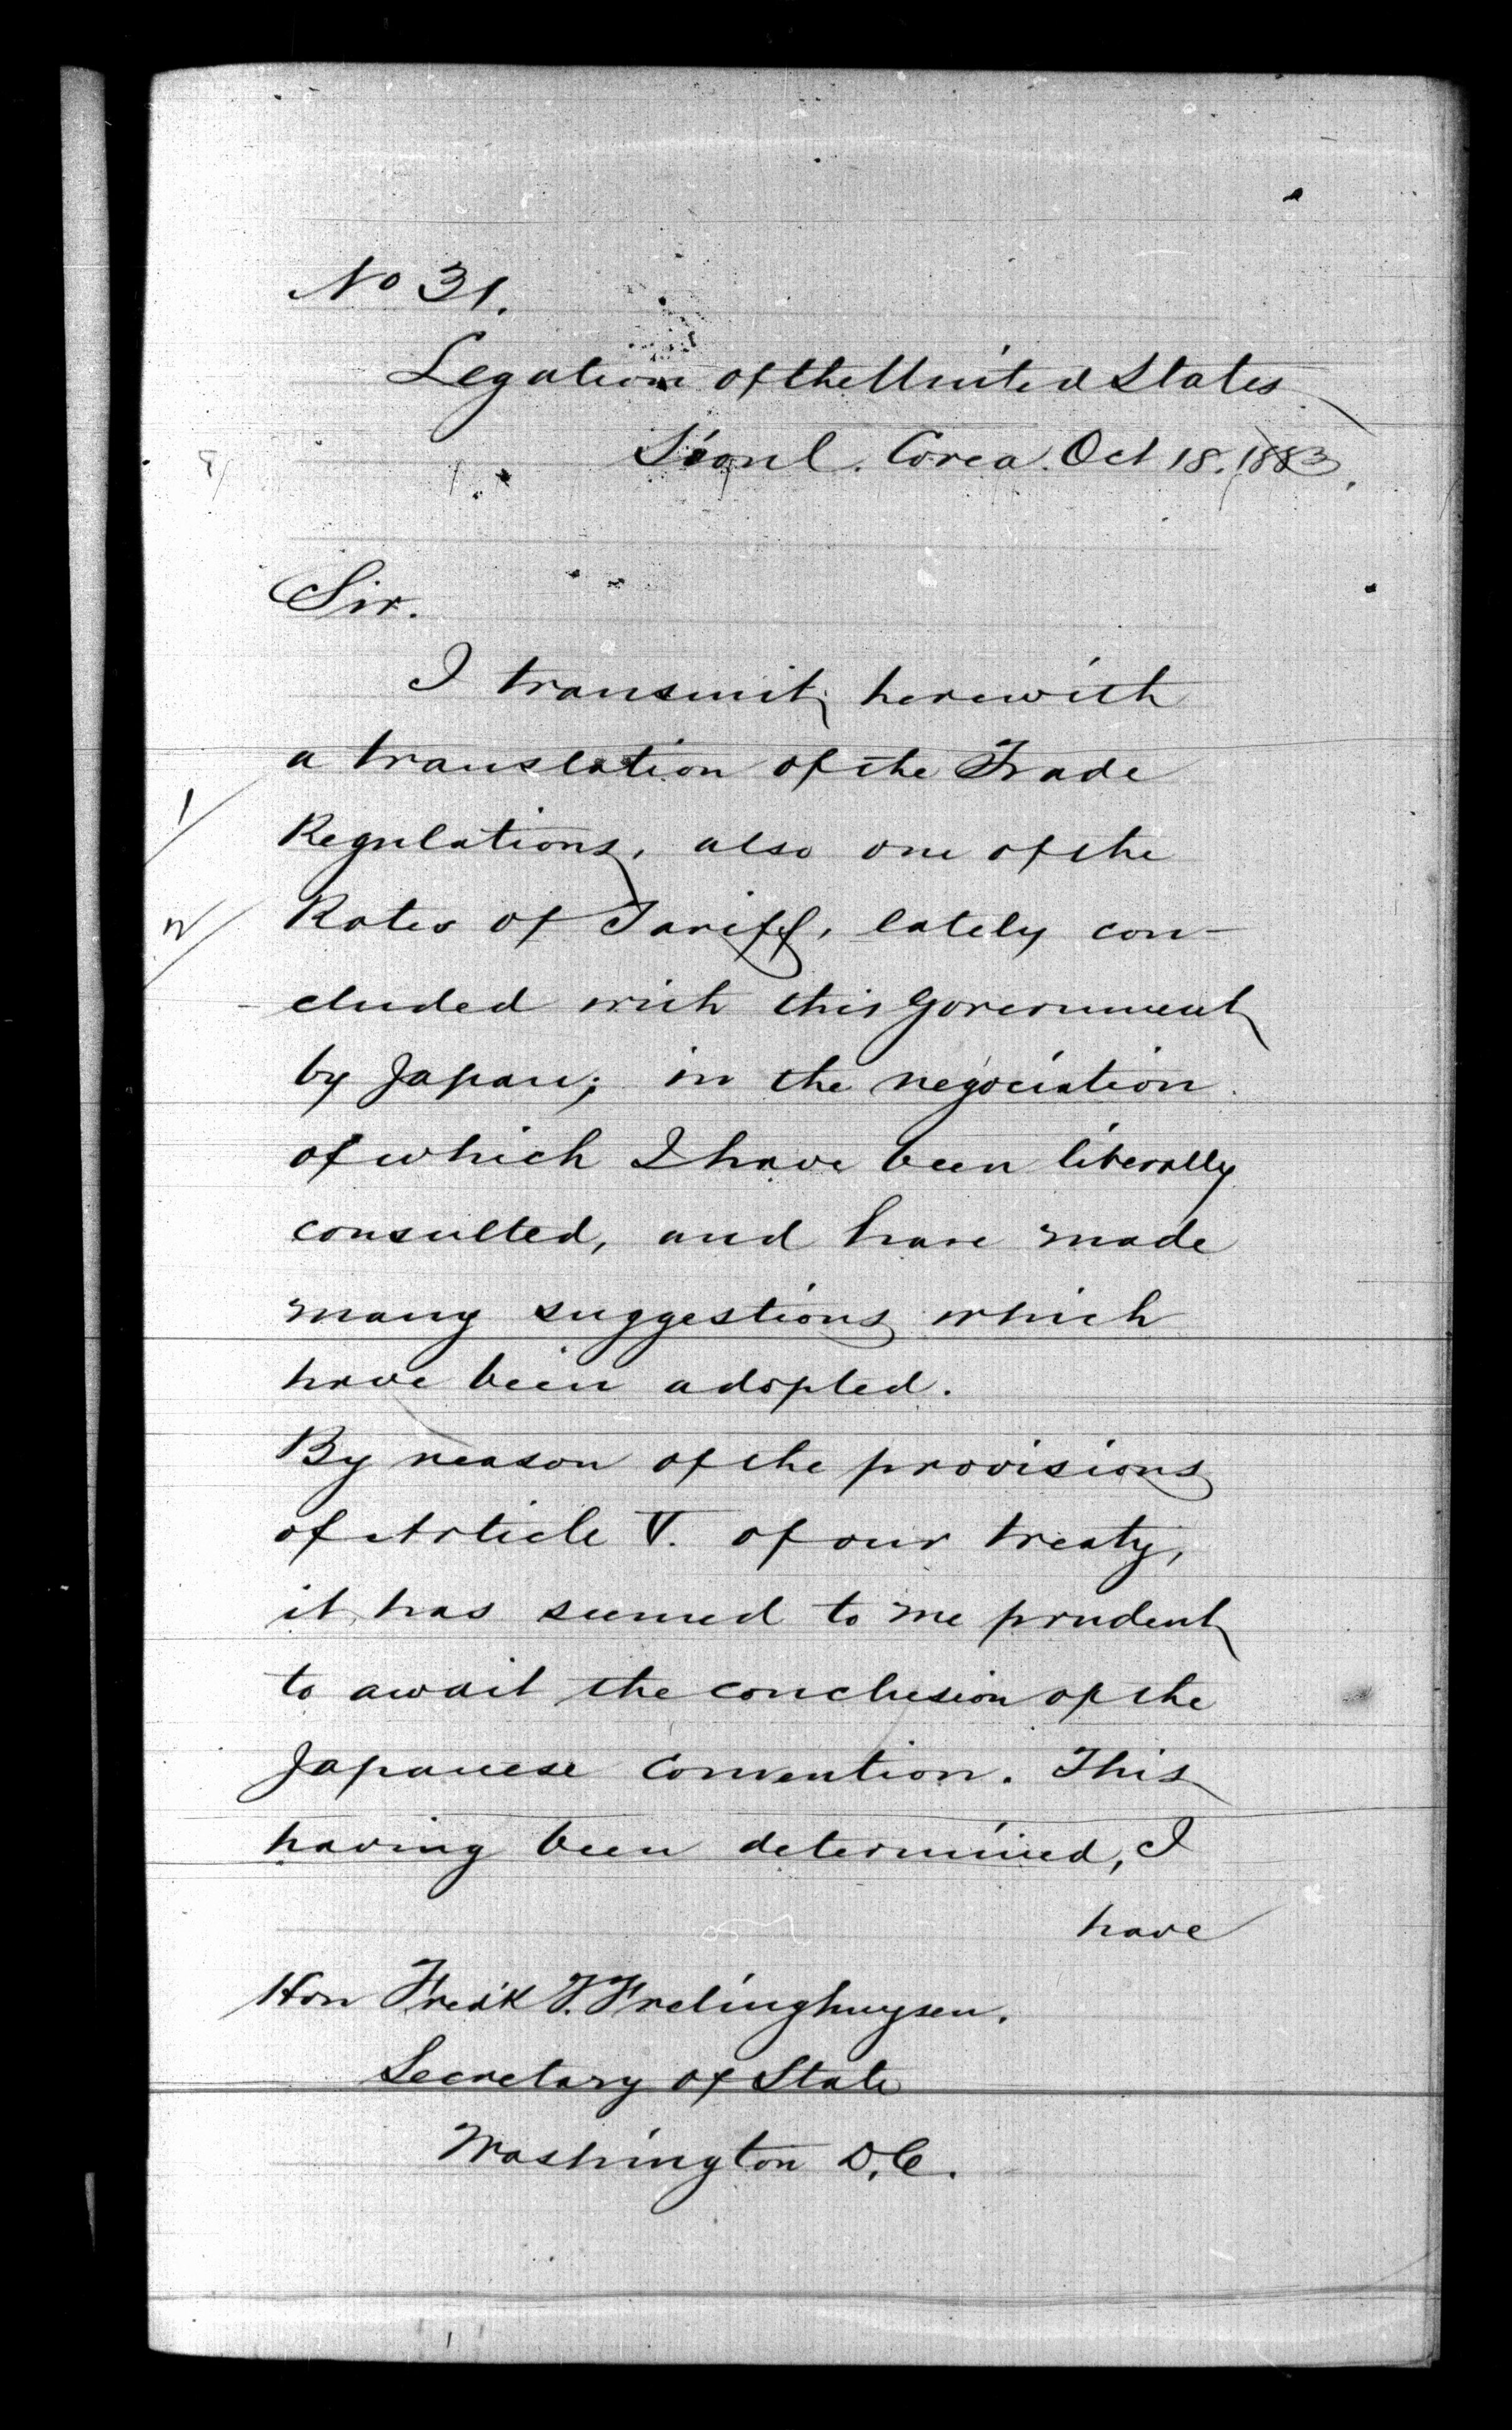 No 31.
Legation of the United States
Söoul. Corea. Oct 18. 1883.
Sir.
I transmit herewith
a translation of the Trade
1/
Regulations, also one of the
2/
Rates of Tariff, lately con-
cluded with this Government
by Japan; in the negociation
of which I have been liberally
consulted, and have made
many suggestions which
have been adopted.
By reason of the provisions
of Article V. of our treaty,
it has seemed to me prudent
to await the conclusion of the
Japanese Convention. This
having been determined, I
have
Hon Fredk T. Frelinghuysen.
Secretary of State
Washington D.C.